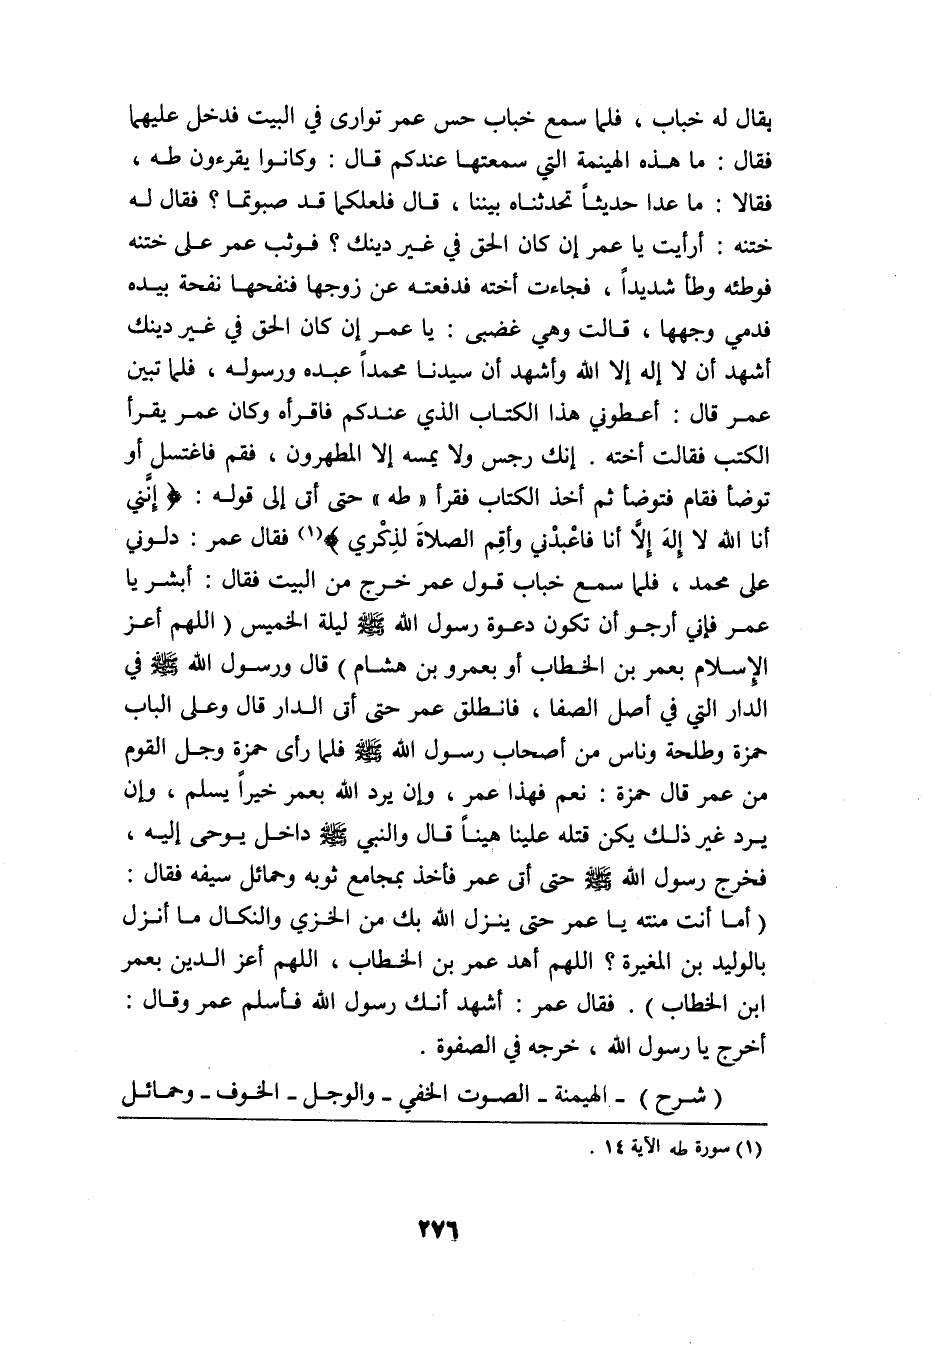 يقال له خباب ، فلما سمع خباب حس عمر توارى في البيت فدخل عليهما
فقال : ما هذه الهينمة التي سمعتها عندكم قال : وكانوا يقرءون طه ،
فقالا : ما عدا حديثاً تحدثناه بيننا ، قال فلعلكما قد صبوتما ؟ فقال له
ختنه : أرأيت يا عمر إن كان الحق في غير دينك ؟ فوثب عمر على ختنه
فوطئه وطأ شديداً ، فجاءت أخته فدفعته عن زوجها فنفحها نفحة بيده
فدمي وجهها ، قالت وهي غضبى : يا عمر إن كان الحق في غير دينك
أشهد أن لا إله إلا الله وأشهد أن سيدنا محمداً عبده ورسوله ، فلما تبين
عمر قال : أعطوني هذا الكتاب الذي عندكم فاقرأه وكان عمر يقرأ
الكتب فقالت أخته . إنك رجس ولا يمسه إلا المطهرون ، فقم فاغتسل أو
توضأ فقام فتوضأ ثم أخذ الكتاب فقرأ « طه » حتى أتى إلى قوله : ﴿ إنَّني
أنا الله لا إلهَ إلَّا أنا فاعْبدْني وأقِم الصلاةَ لذِكْري ﴾(١) فقال عمر : دلوني
على محمد ، فلما سمع خباب قول عمر خرج من البيت فقال : أبشر يا
عمر فإني أرجو أن تكون دعوة رسول الله ﷺ ليلة الخميس ( اللهم أعز
الإسلام بعمر بن الخطاب أو بعمرو بن هشام ) قال ورسول الله ﷺ في
الدار التي في أصل الصفا ، فانطلق عمر حتى أتى الدار قال وعلى الباب
حمزة وطلحة وناس من أصحاب رسول الله ﷺ فلما رأى حمزة وجل القوم
من عمر قال حمزة : نعم فهذا عمر ، وإن يرد الله بعمر خيراً يسلم ، وإن
يرد غير ذلك يكن قتله علينا هيناً قال والنبي ﷺ داخل يوحى إليه ،
فخرج رسول الله ﷺ حتى أتى عمر فأخذ بمجامع ثوبه وحمائل سيفه فقال :
( أما أنت منته يا عمر حتى ينزل الله بك من الخزي والنكال ما أنزل
بالوليد بن المغيرة ؟ اللهم أهد عمر بن الخطاب ، اللهم أعز الدين بعمر
ابن الخطاب ) . فقال عمر : أشهد أنك رسول الله فأسلم عمر وقال :
أخرج يا رسول الله ، خرجه في الصفوة .
( شرح ) ـ الهيمنة ـ الصوت الخفي ـ والوجل ـ الخوف ـ وحمائل
(١) سورة طه الآية ١٤ .
٢٧٦